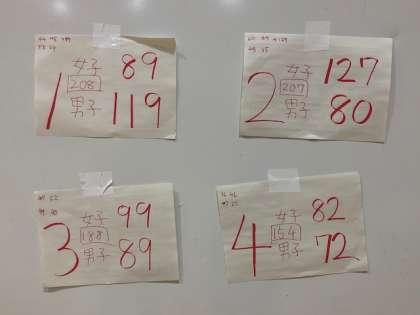 1
女子 89
208
男子 119
2
女子 127
207
男子 80
3
女子 99
188
男子 89
4
女子 82
154
男子 72